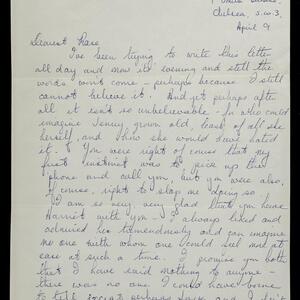 Chelsea, S.W.3.
April 9
Dearest
I've been trying to write this letter
all day and now it's evening and still the
words won't come – perhaps because I still
cannot believe it. And yet perhaps after
all it isn't so unbelievable – for who could
imagine Jenny grown old, least of all she
herself, and she would have hated
it. You were right of course that my
first instinct was to pick up the
phone and call you, but you were also,
of course, right to stop me doing so.
I am so very, very glad that you have
Harriet with you – I always liked and
admired her tremendously and can imagine
no one with whom one could feel more at
ease at such a time. I promise you both
that I have said nothing to anyone –
there was no one I could have borne
to tell except perhaps